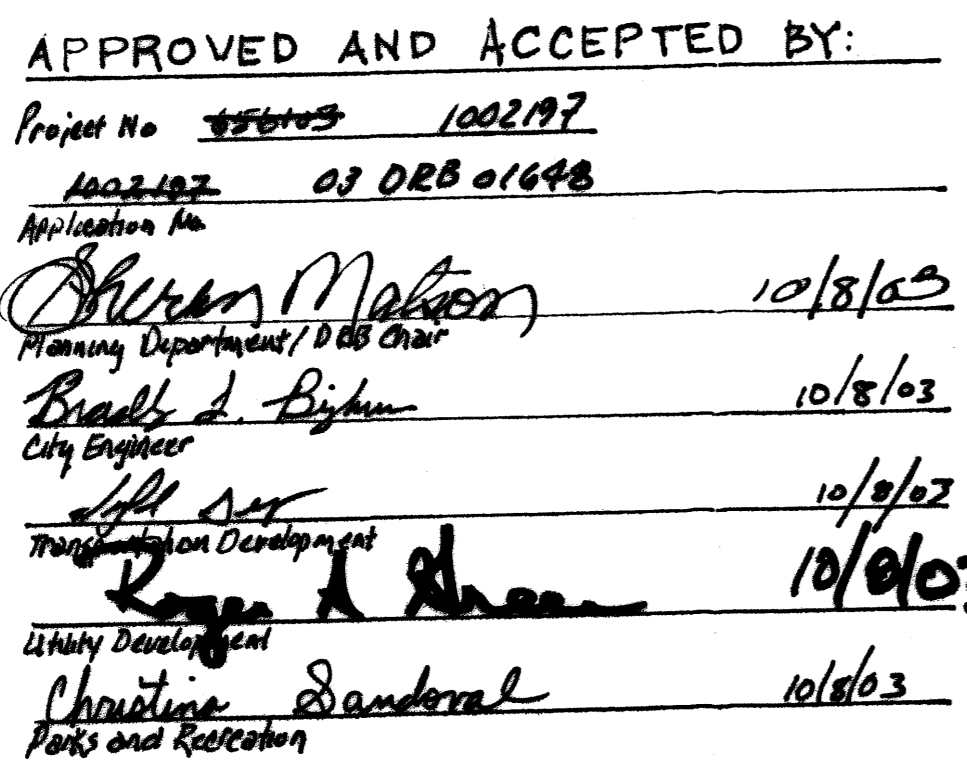 APPROVED AND ACCEPTED BY:
Project No 656103 1002197
1002197 03 DRB 01648
Application No.
Sheran Matson 10/8/03
Planning Department/DRB Chair
Bradly L. Bingham 10/8/03
City Engineer
10/8/03
Transportation Development
Roger A Green 10/8/03
Utility Development
Christina Sandoval 10/8/03
Parks and Recreation